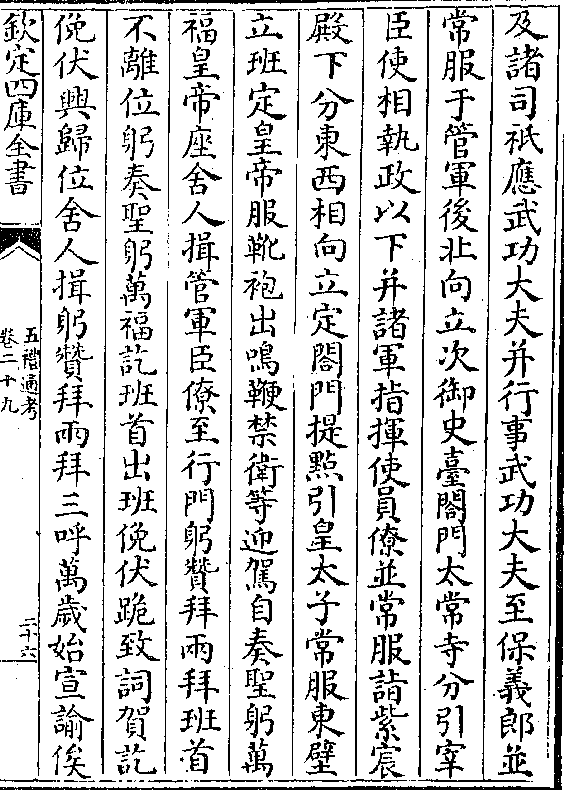 及諸司祇應武功大夫并行事武功大夫至保義郎並
常服于管軍後北向立次御史臺閤門太常寺分引宰
臣使相執政以下并諸軍指揮使員僚並常服詣紫宸
殿下分東西相向立定閤門提㸃引皇太子常服東壁
立班定皇帝服靴袍出鳴鞭禁衛等迎駕自奏聖躬萬
福皇帝座舍人揖管軍臣僚至行門躬贊拜兩拜班首
不離位躬奏聖躬萬福訖班首出班俛伏跪致詞賀訖
俛伏興歸位舍人揖躬贊拜兩拜三呼萬歲始宣諭俟
欽定四庫全書
五禮通考
卷二十九
二十六